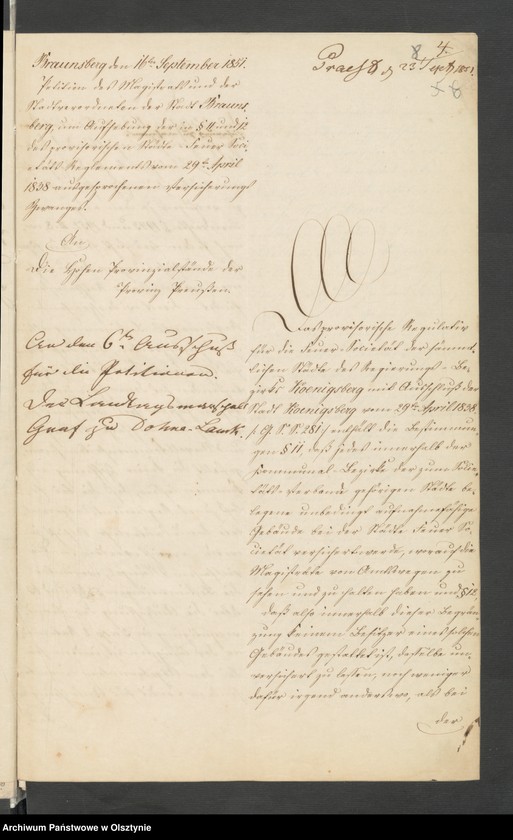 4.
8
Praes. d 23t Sept 1851.
Braunsberg den 16ten September 1851.
Petition des Magistrats und der
Stadtverordneten der Stadt Brauns-
berg, um Aufhebung der in § 11 und 12
des provisorischen Städte-Feuer-Soci-
etäts-Reglements vom 29ten April
1838 ausgesprochenen Versicherungs-
Zwanges.
An
Die Hohen Provinzialstände der
Provinz Preußen.
An den 6ten Ausschuß
für die Petitionen.
Der Landtagsmarschall
Graf zu Dohna-Lauck.
Das provisorische Regulativ
für die Feuer-Societät der sämmt-
lichen Städte des Regierungs-Be-
zirks Koenigsberg mit Ausschluß der
Stadt Koenigsberg vom 29ten April 1838.
p. G. S. S. 281. enthält die Bestimmun-
gen § 11, daß jedes innerhalb der
Communal-Bezirke der zum Socie-
täts-Verbande gehörigen Städte be-
legene unbedingt aufnahmefähige
Gebäude bei der Städte Feuer So-
cietät versichert werde, worauf die
Magistrate von Amtswegen zu
sehen und zu halten haben und § 12
daß also innerhalb dieser Begrän-
zung keinem Besitzer eines solchen
Gebäudes gestattet ist, dasselbe un-
versichert zu lassen, noch weniger
dafür irgend anderswo, als bei
der
Archiwum Państwowe w Olsztynie